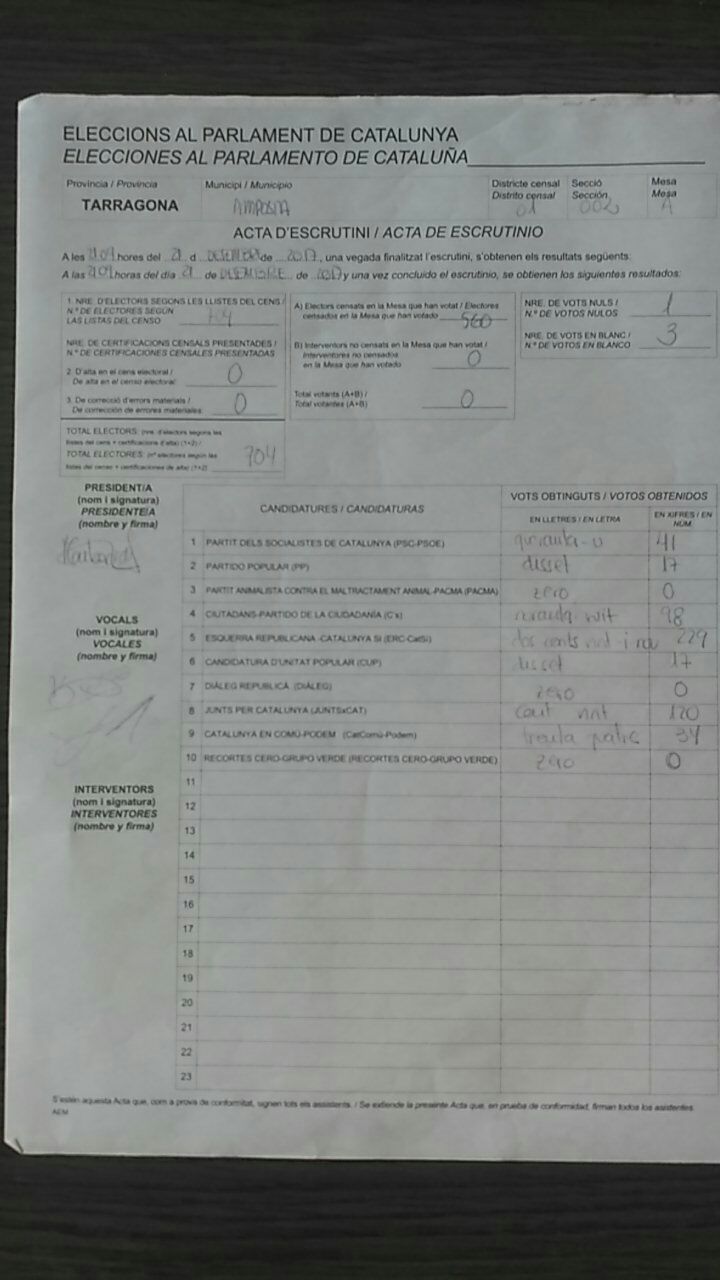 ELECCIONS AL PARLAMENT DE CATALUNYA
ELECCIONES AL PARLAMENTO DE CATALUÑA
Província / Provincia Municipi / Municipio Districte censal Secció Mesa
Distrito censal Sección Mesa
TARRAGONA AMPOSTA 01 002 A
ACTA D'ESCRUTINI / ACTA DE ESCRUTINIO
A les hores del 21 d DESEMBRE de 2017, una vegada finalitzat l'escrutini, s'obtenen els resultats següents:
A las horas del día 21 de DESEMBRE de 2017 y una vez concluido el escrutinio, se obtienen los siguientes resultados:
1. NRE. D'ELECTORS SEGONS LES LLISTES DEL CENS /
N.º DE ELECTORES SEGÚN
LAS LISTAS DEL CENSO 704
NRE. DE CERTIFICACIONS CENSALS PRESENTADES /
N.º DE CERTIFICACIONES CENSALES PRESENTADAS
2. D'alta en el cens electoral /
De alta en el censo electoral: 0
3. De correcció d'errors materials /
De corrección de errores materiales: 0
TOTAL ELECTORS: (nre. d'electors segons les
llistes del cens + certificacions d'alta) (1+2) /
TOTAL ELECTORES: (nº electores según las
listas del censo + certificaciones de alta) (1+2) 704
A) Electors censats en la Mesa que han votat / Electores
censados en la Mesa que han votado 560
B) Interventors no censats en la Mesa que han votat /
Interventores no censados
en la Mesa que han votado 0
Total votants (A+B) /
Total votantes (A+B) 0
NRE. DE VOTS NULS /
N.º DE VOTOS NULOS 1
NRE. DE VOTS EN BLANC /
N.º DE VOTOS EN BLANCO 3
PRESIDENT/A
(nom i signatura)
PRESIDENTE/A
(nombre y firma)
VOCALS
(nom i signatura)
VOCALES
(nombre y firma)
INTERVENTORS
(nom i signatura)
INTERVENTORES
(nombre y firma)
CANDIDATURES / CANDIDATURAS VOTS OBTINGUTS / VOTOS OBTENIDOS
EN LLETRES / EN LETRA EN XIFRES / EN NÚM.
1 PARTIT DELS SOCIALISTES DE CATALUNYA (PSC-PSOE) 41
2 PARTIDO POPULAR (PP) disset 17
3 PARTIT ANIMALISTA CONTRA EL MALTRACTAMENT ANIMAL-PACMA (PACMA) zero 0
4 CIUTADANS-PARTIDO DE LA CIUDADANÍA (C's) 98
5 ESQUERRA REPUBLICANA-CATALUNYA SÍ (ERC-CatSí) dos cents 229
6 CANDIDATURA D'UNITAT POPULAR (CUP) disset 17
7 DIÀLEG REPUBLICÀ (DIÀLEG) zero 0
8 JUNTS PER CATALUNYA (JUNTSxCAT) cent vint 120
9 CATALUNYA EN COMÚ-PODEM (CatComú-Podem) trenta quatre 34
10 RECORTES CERO-GRUPO VERDE (RECORTES CERO-GRUPO VERDE) zero 0
11
12
13
14
15
16
17
18
19
20
21
22
23
S'estén aquesta Acta que, com a prova de conformitat, signen tots els assistents. / Se extiende la presente Acta que, en prueba de conformidad, firman todos los asistentes.